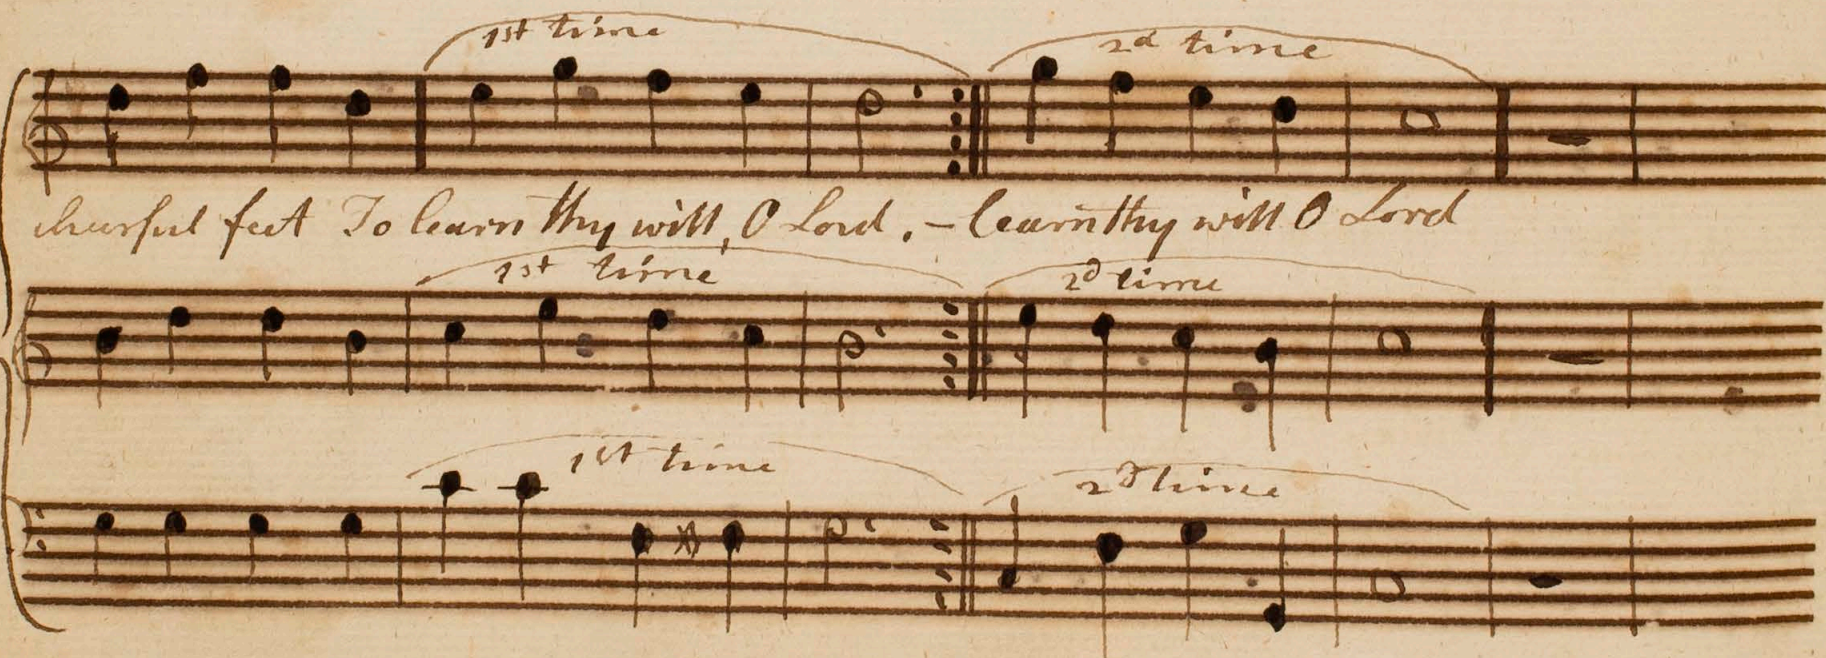 1st time 2d time
cheerful feet To learn thy will, O Lord. - learn thy will O Lord
1st time 2d time
1st time 2d time